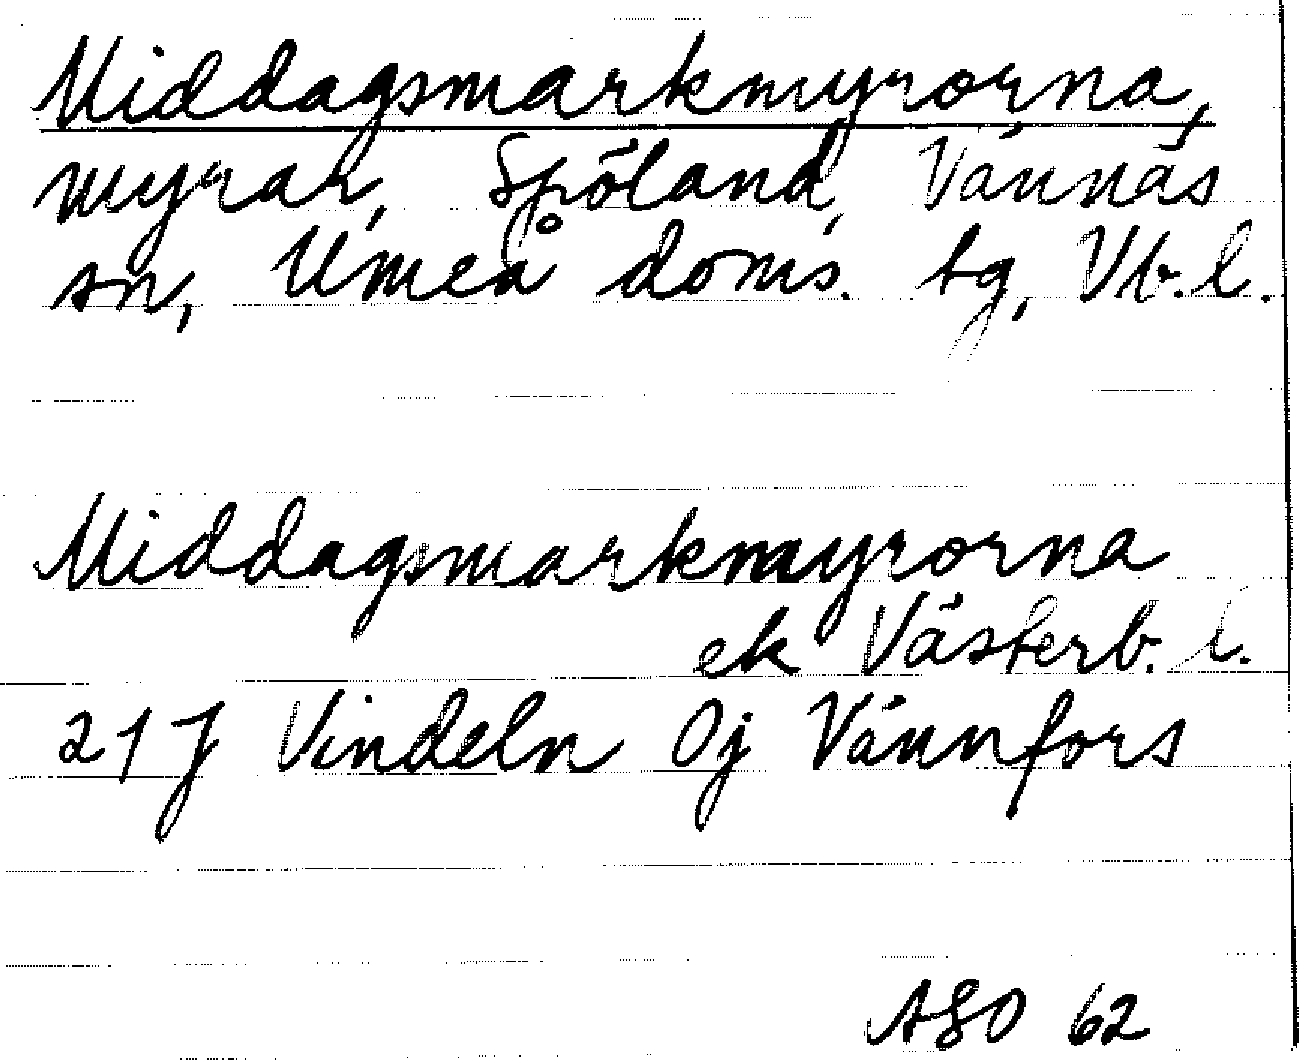 Middagsmarkmyrorna,
myrar, Spöland, Vännäs
sn, Umeå doms. tg, Vb. l.
Middagsmarkmyrorna
ek Västerb. l.
21 J Vindeln 0j Vännfors
ASO 62